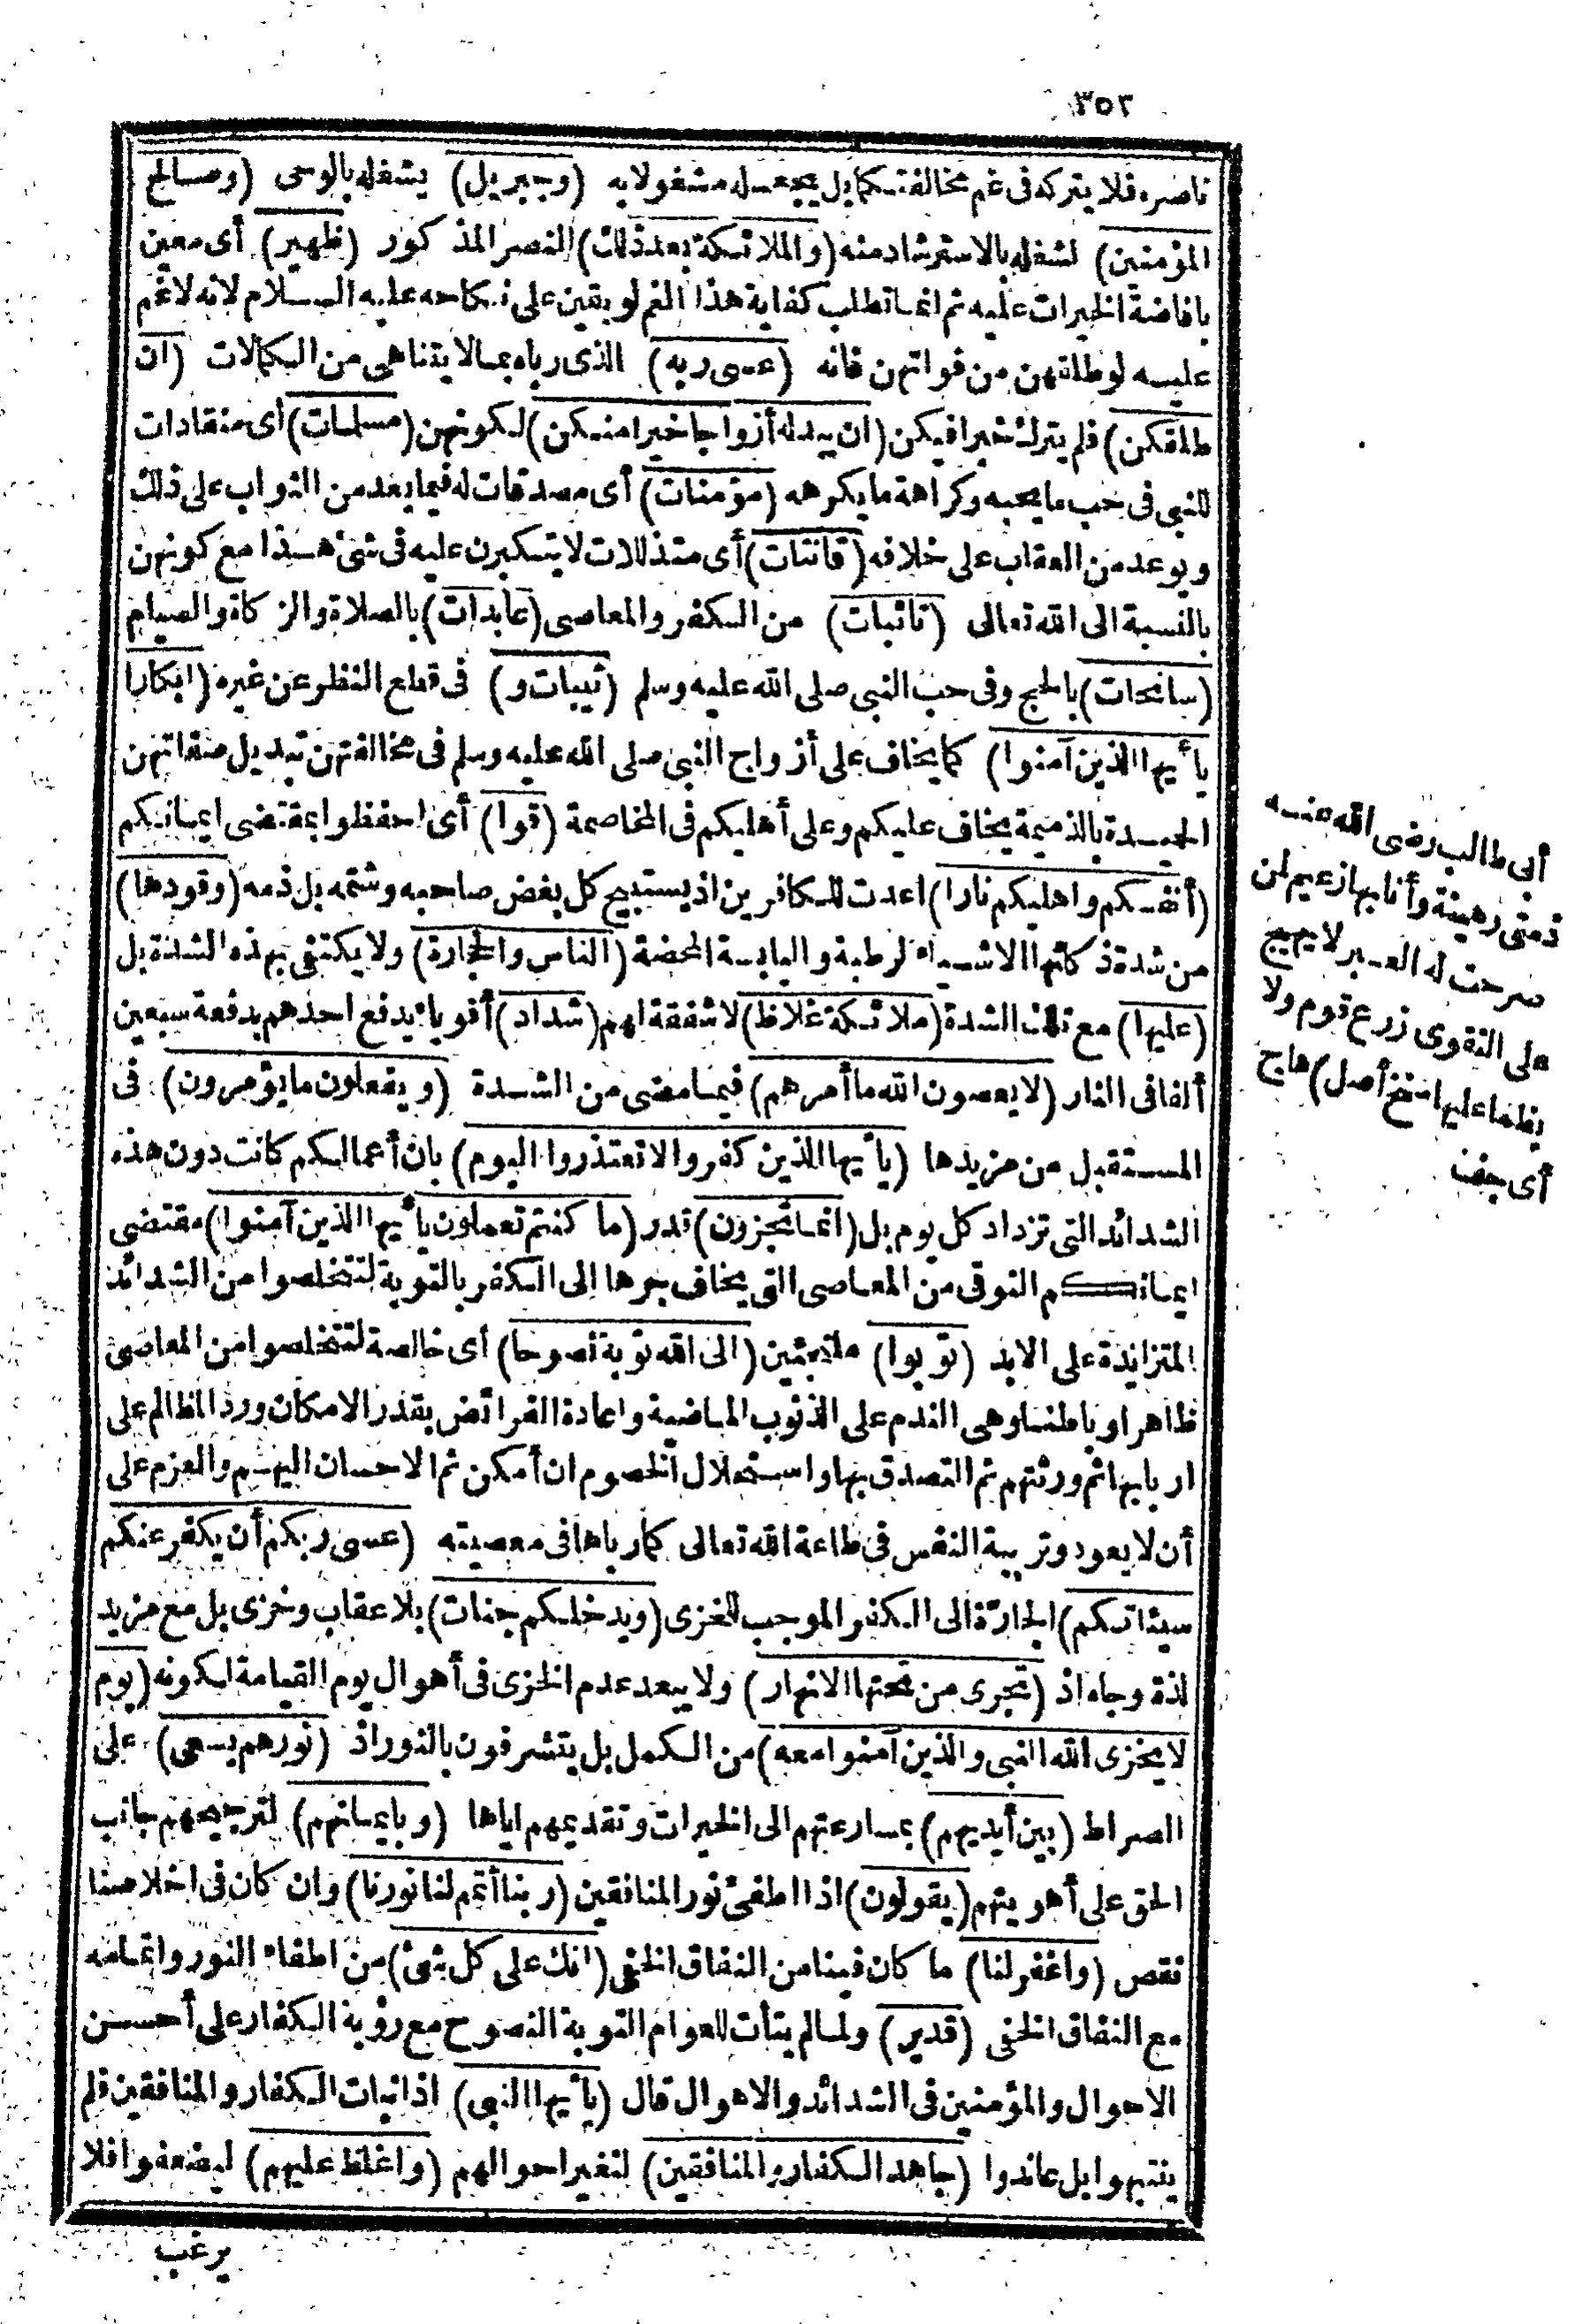 ٣٥٢
ناصره فلا يتركه فى غم مخالفتكما بل يجعله مشغولا به (وجبريل) يشغله بالوحى (وصالح
المؤمنين) لشغله بالاسترشاد منه (والملائكة بعد ذلك) النصر المذكور (ظهير) أى معين
بافاضة الخيرات عليه ثم انما تطلب كفاية هذا الغم لو بقين على نكاحه عليه السلام لانه لا غم
عليه لو طلقهن من فواتهن فانه (عسى ربه) الذى رباه بما لا يتناهى من الكمالات (ان
طلقكن) فلم يترك خيرا فيكن (ان يبدله أزواجا خيرا منكن) لكونهن (مسلمات) أى منقادات
للنبى فى حب ما يحبه وكراهة ما يكرهه (مؤمنات) أى مصدقات له فيما يعد من الثواب على ذلك
ويوعد من العقاب على خلافه (قانتات) أى متذللات لا يتكبرن عليه فى شئ هذا مع كونهن
بالنسبة الى الله تعالى (تائبات) من الكفر والمعاصى (عابدات) بالصلاة والزكاة والصيام
(سائحات) بالحج وفى حب النبى صلى الله عليه وسلم (ثيبات و) فى قطع النظر عن غيره (ابكارا
يا أيها الذين آمنوا) كما يخاف على أزواج النبى صلى الله عليه وسلم فى مخالفتهن تبديل صفاتهن
الحميدة بالذميمة يخاف عليكم وعلى أهليكم فى المخاصمة (قوا) أى احفظوا بمقتضى ايمانكم
(أنفسكم واهليكم نارا) اعدت للكافرين اذ يستبيح كل بغض صاحبه وشتمه بل ذمه (وقودها)
من شدة ذكائها الاشياء الرطبة واليابسة المحضة (الناس والحجارة) ولا يكتفى بهذه الشدة بل
(عليها) مع تلك الشدة (ملائكة غلاظ) لا شفقة لهم (شداد) أقوياء يدفع احدهم بدفعة سبعين
ألفا فى النار (لا يعصون الله ما أمرهم) فيما مضى من الشدة (ويفعلون ما يؤمرون) فى
المستقبل من مزيدها (يا أيها الذين كفروا لا تعتذروا اليوم) بان أعمالكم كانت دون هذه
الشدائد التى تزداد كل يوم بل (انما تجزون) قدر (ما كنتم تعملون يا أيها الذين آمنوا) مقتضى
ايمانكم التوقى من المعاصى التى يخاف جرها الى الكفر بالتوبة لتتخلصوا من الشدائد
المتزايدة على الابد (توبوا) ملتجئين (الى الله توبة نصوحا) أى خالصة لتتخلصوا من المعاصى
ظاهرا وباطنا وهى الندم على الذنوب الماضية واعادة الفرائض بقدر الامكان ورد المظالم على
اربابها ثم ورثتهم ثم التصدق بها واستحلال الخصوم ان أمكن ثم الاحسان اليهم والعزم على
أن لا يعود وتربية النفس فى طاعة الله تعالى كما رباها فى معصيته (عسى ربكم أن يكفر عنكم
سيئاتكم) الجارة الى الكفر الموجب للخزى (ويدخلكم جنات) بلا عقاب وخزى بل مع مزيد
لذة وجاه اذ (تجرى من تحتها الانهار) ولا يبعد عدم الخزى فى أهوال يوم القيامة لكونه (يوم
لا يخزى الله النبى والذين آمنوا معه) من الكمل بل يتشرفون بالنور اذ (نورهم يسعى) على
الصراط (بين أيديهم) بمسارعتهم الى الخيرات وتقديمهم اياها (وبايمانهم) لترجيحهم جانب
الحق على أهويتهم (يقولون) اذا اطفئ نور المنافقين (ربنا أتمم لنا نورنا) وان كان فى اخلاصنا
نقص (واغفر لنا) ما كان فينا من النفاق الخفى (انك على كل شئ) من اطفاء النور واتمامه
مع النفاق الخفى (قدير) ولما لم يتأت للعوام التوبة النصوح مع رؤية الكفار على أحسن
الاحوال والمؤمنين فى الشدائد والاهوال قال (يا أيها النبى) اذا نبأت الكفار والمنافقين فلم
ينتهوا بل عاندوا (جاهد الكفار والمنافقين) لتغير احوالهم (واغلظ عليهم) ليضعفوا فلا
يرغب
أبى طالب رضى الله عنه
ذمتى رهينة وأنا بها زعيم لمن
صرحت له العبر لا يهيج
على التقوى زرع قوم ولا
يظمأ عليها سنخ أصل) هاج
أى جف